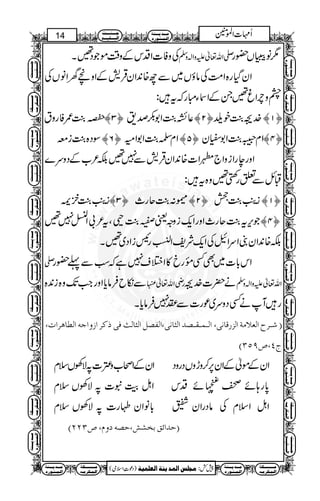 14
اُمہاتُ المؤمنین
مگر نو بیبیاں حضور صلی اللہ تعالیٰ علیہ والہ وسلم کی وفات اقدس کے وقت موجود تھیں۔
ان گیارہ امت کی ماؤں میں سے چھ خاندان قریش کے اونچے گھرانوں کی
چشم و چراغ تھیں جن کے اسماء مبارکہ یہ ہیں:
﴿۱﴾ خدیجہ بنت خویلد ﴿۲﴾ عائشہ بنت ابوبکر صدیق ﴿۳﴾ حفصہ بنت عمر فاروق
﴿۴﴾ اُم حبیبہ بنت ابوسفیان ﴿۵﴾ اُم سلمہ بنت ابو امیہ ﴿۶﴾ سودہ بنت زمعہ
اور چار ازواج مطہرات خاندان قریش سے نہیں تھیں بلکہ عرب کے دوسرے
قبائل سے تعلق رکھتی تھیں وہ یہ ہیں:
﴿۱﴾ زینب بنت جحش ﴿۲﴾ میمونہ بنت حارث ﴿۳﴾ زینب بنت خزیمہ
﴿۴﴾ جویریہ بنت حارث اور ایک زوجہ یعنی صفیہ بنت حیی، یہ عربی النسل نہیں تھیں
بلکہ خاندان بنی اسرائیل کی ایک شریف النسب رئیس زادی تھیں۔
اس بات میں کسی مؤرخ کا اختلاف نہیں ہے کہ سب سے پہلے حضور صلی
اللہ تعالیٰ علیہ والہ وسلم نے حضرت خدیجہ رضی اللہ تعالیٰ عنہا سے نکاح فرمایا اور جب تک وہ زندہ
رہیں آپ نے کسی دوسری عورت سے عقد نہیں فرمایا۔
(شرح العلامة الزرقانی، المقصد الثانی،الفصل الثالث فی ذکر ازواجه الطاهرات،
ج٤،ص٣٥٩)
ان کے مولیٰ کے ان پر کروڑوں درود ان کے اصحاب و عترت پہ لاکھوں سلام
پارہائے صحف غنچہائے قدس اہل بیت نبوت پہ لاکھوں سلام
اہل اسلام کی مادران شفیق بانوان طہارت پہ لاکھوں سلام
(حدائق بخشش،حصه دوم، ص٢٢٣)
پیش کش: مجلس المدینة العلمیة (دعوتِ اسلامی)